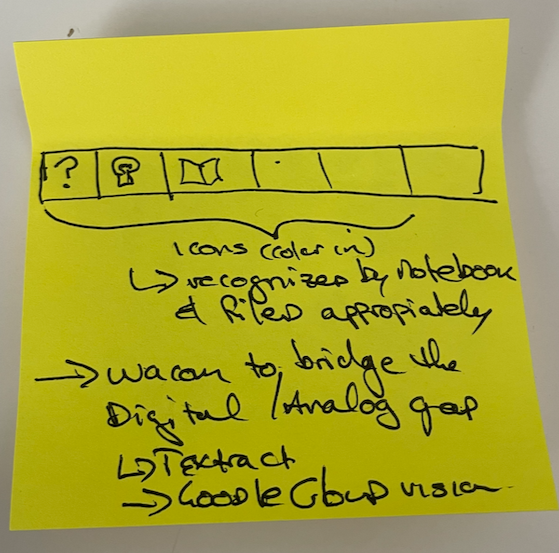 ?
icons (color in)
↳ recognized by notebook
& filed appropiately
→ Wacom to bridge the
Digital / Analog gap
↳ Textract
→ Google Cloud vision